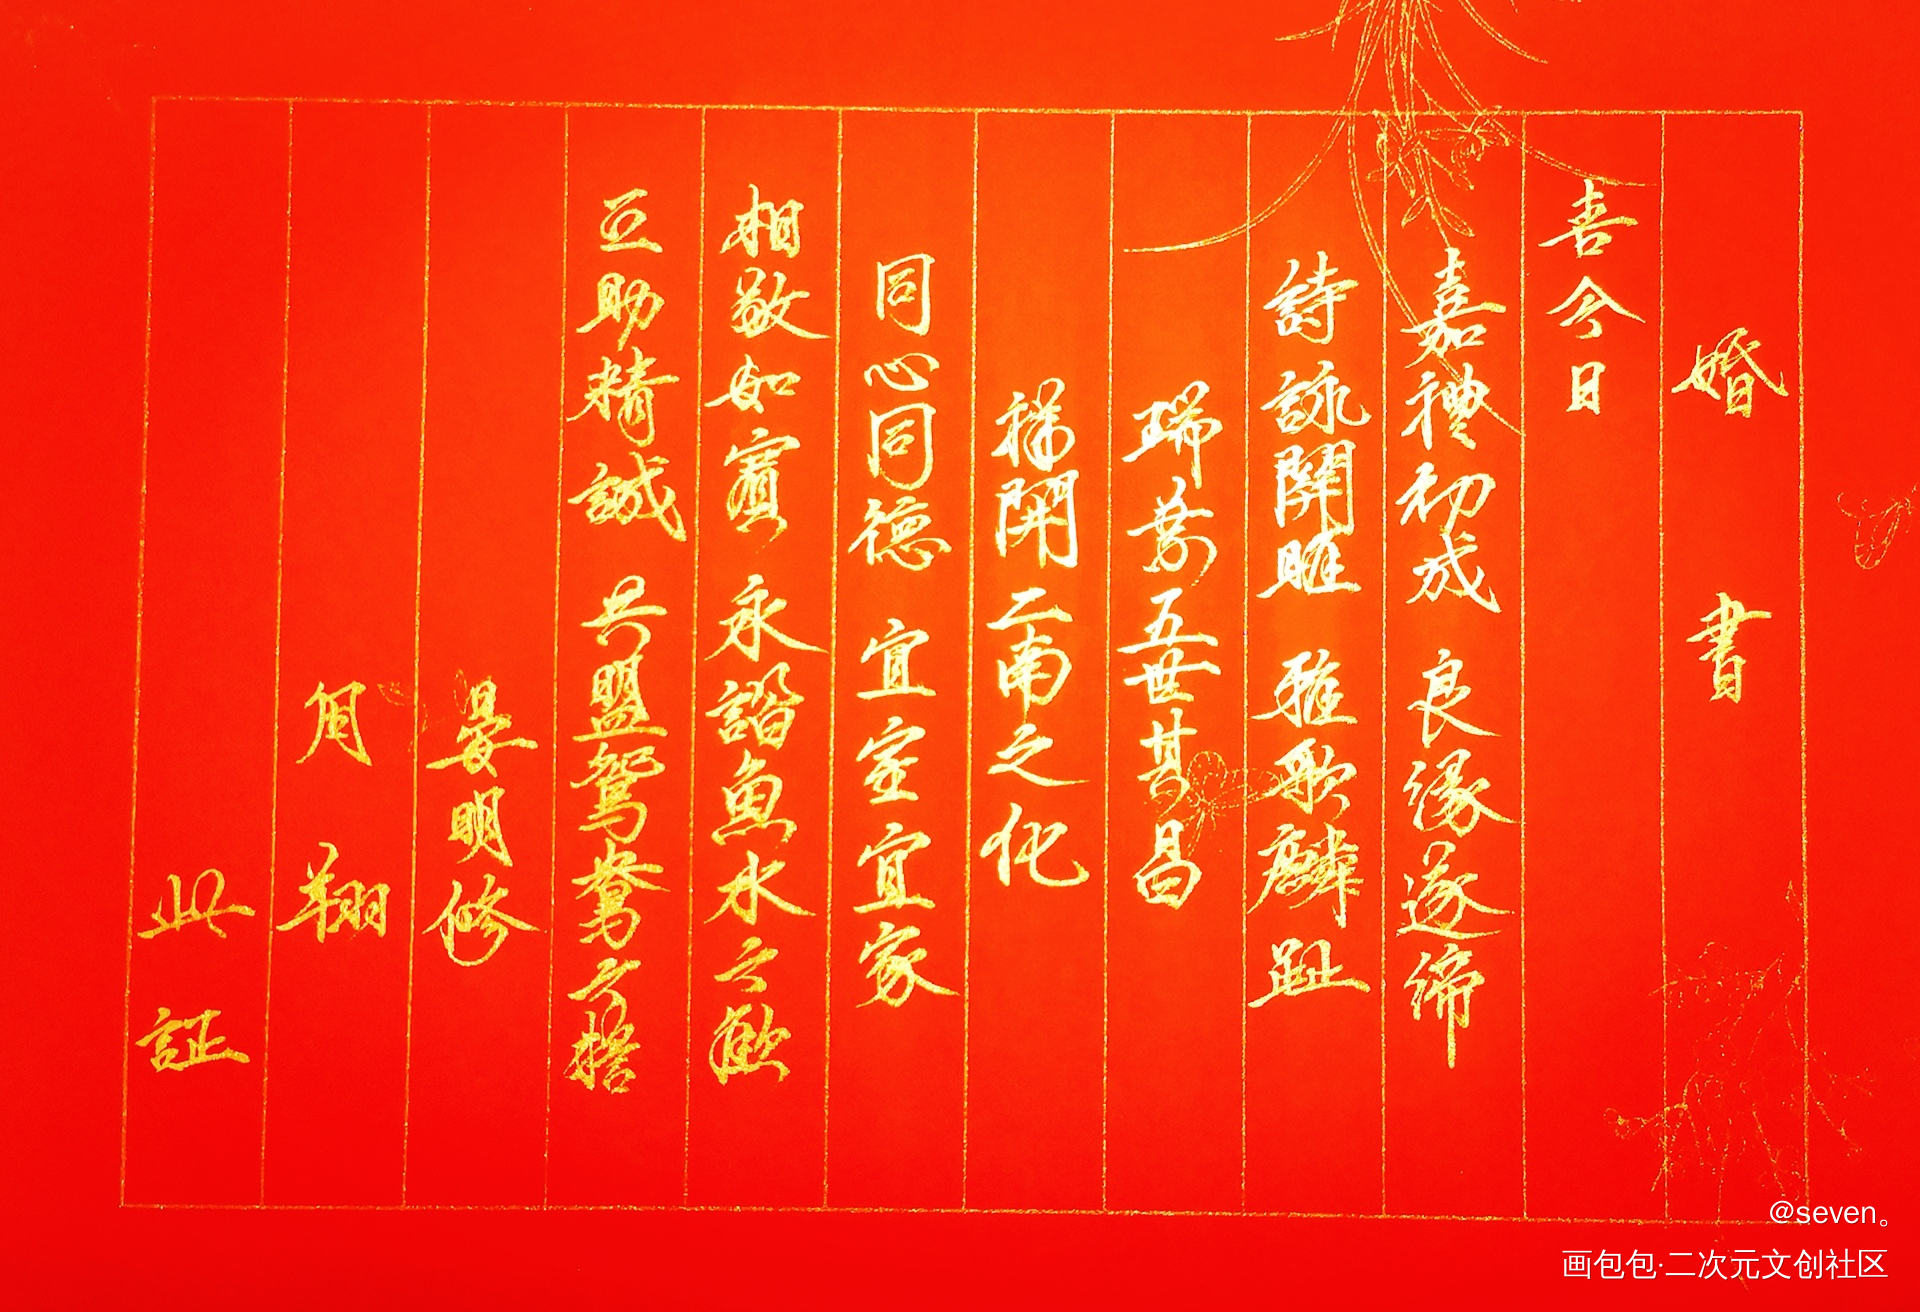 婚書
喜今日
嘉禮初成 良缘遂締
詩詠關雎 雅歌麟趾
瑞葉五世其昌
祥開二南之化
同心同德 宜室宜家
相敬如賓 永諧魚水之歡
互助精誠 共盟鴛鴦之誓
晏明修
周翔
此証
@seven。
画包包·二次元文创社区